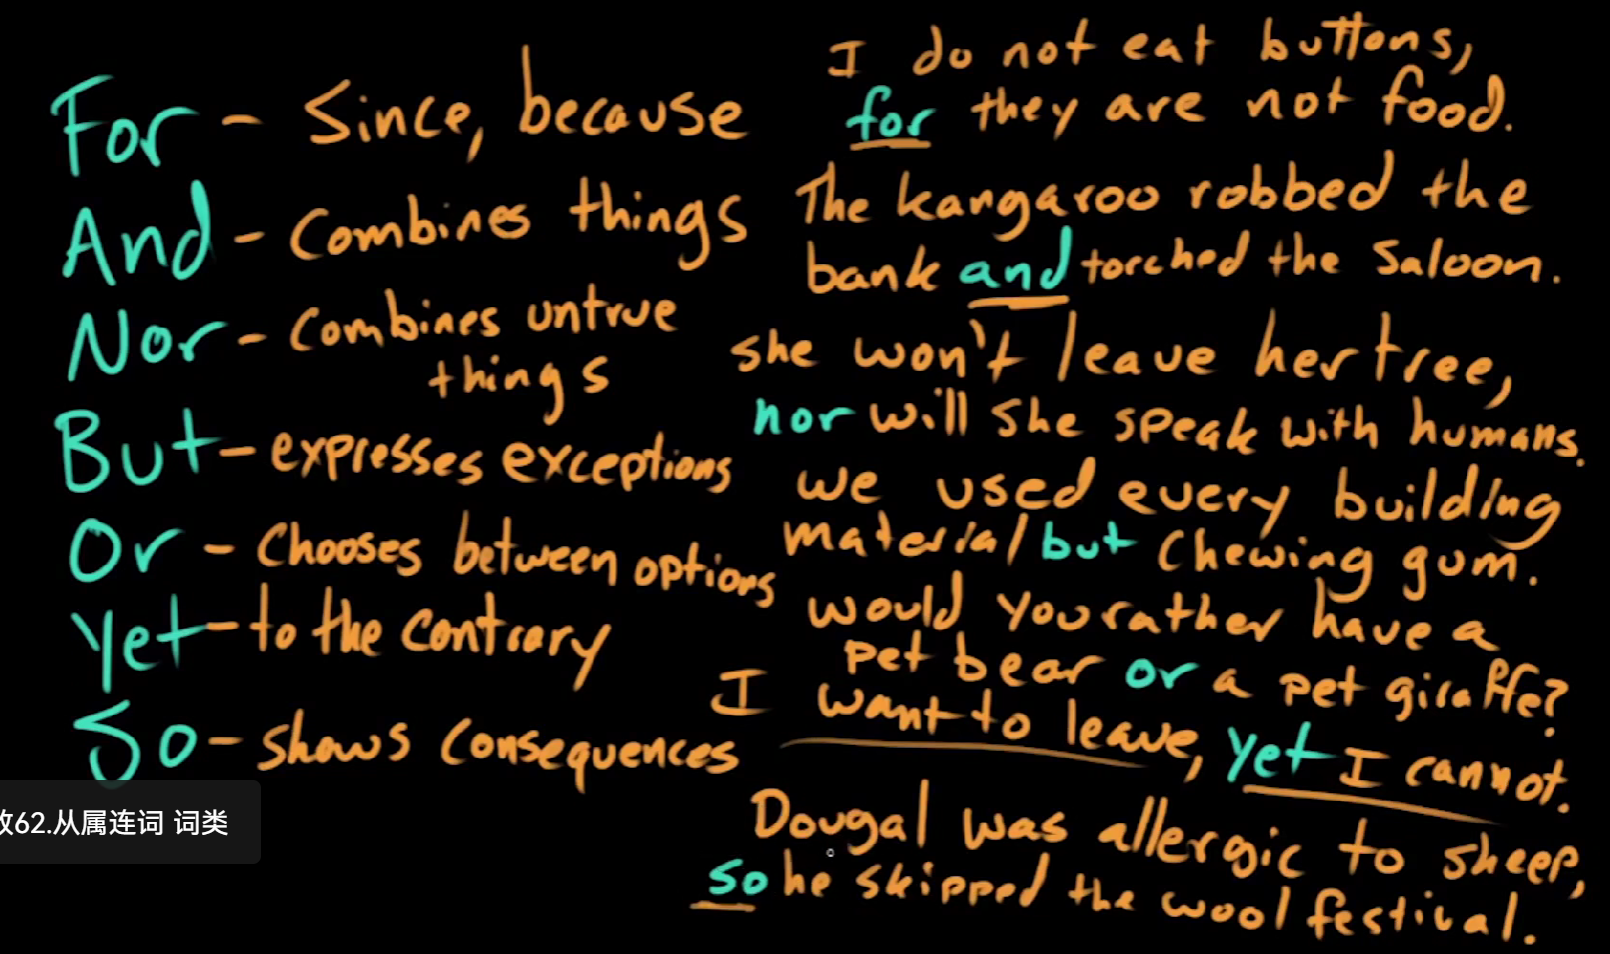 For - Since, because
And - combines things
Nor - combines untrue
things
But - expresses exceptions
Or - Chooses between options
Yet - to the contrary
So - shows consequences
I do not eat buttons,
for they are not food.
The kangaroo robbed the
bank and torched the saloon.
she won't leave her tree,
nor will she speak with humans.
we used every building
material but chewing gum.
would you rather have a
pet bear or a pet giraffe?
I want to leave, yet I cannot.
Dougal was allergic to sheep,
so he skipped the wool festival.
62.从属连词 词类